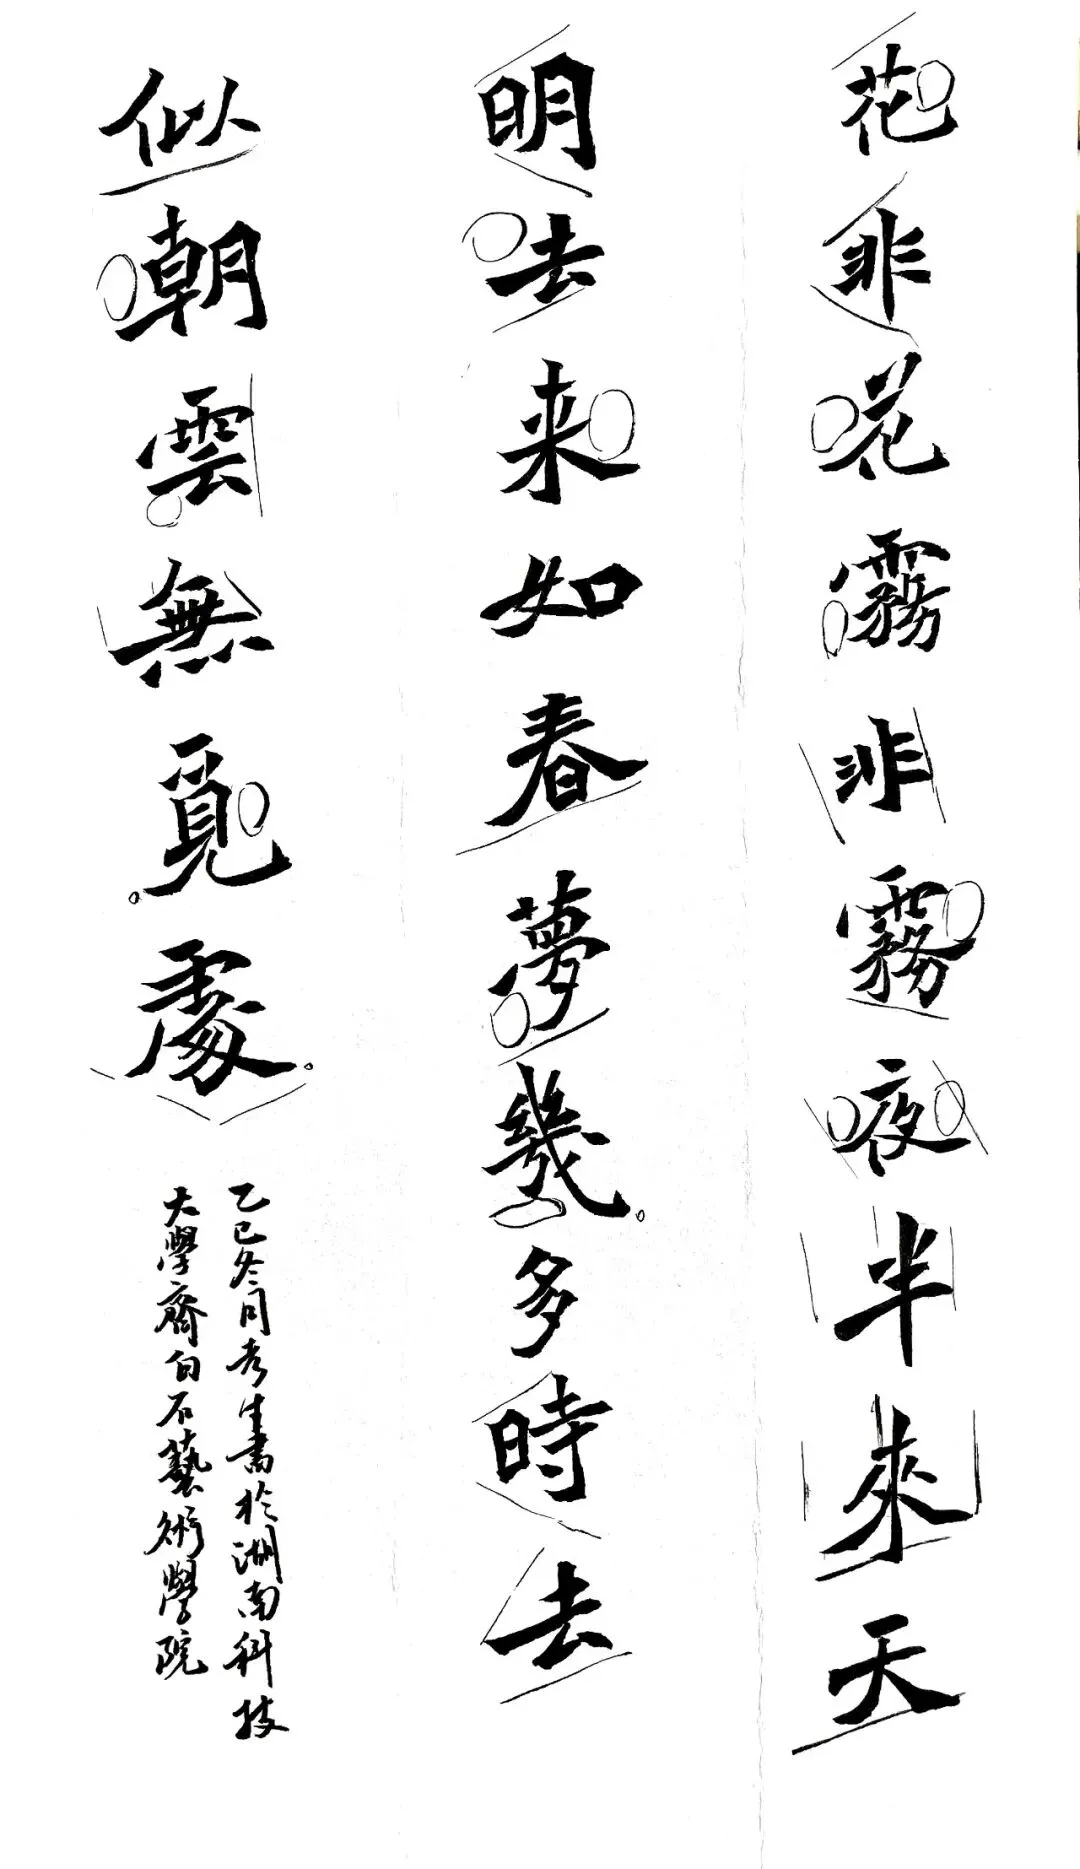 花非花霧非霧夜半來天
明去来如春夢幾多時去
似朝雲無覓處
乙巳冬月考生書於湖南科技
大學齋白石藝術學院